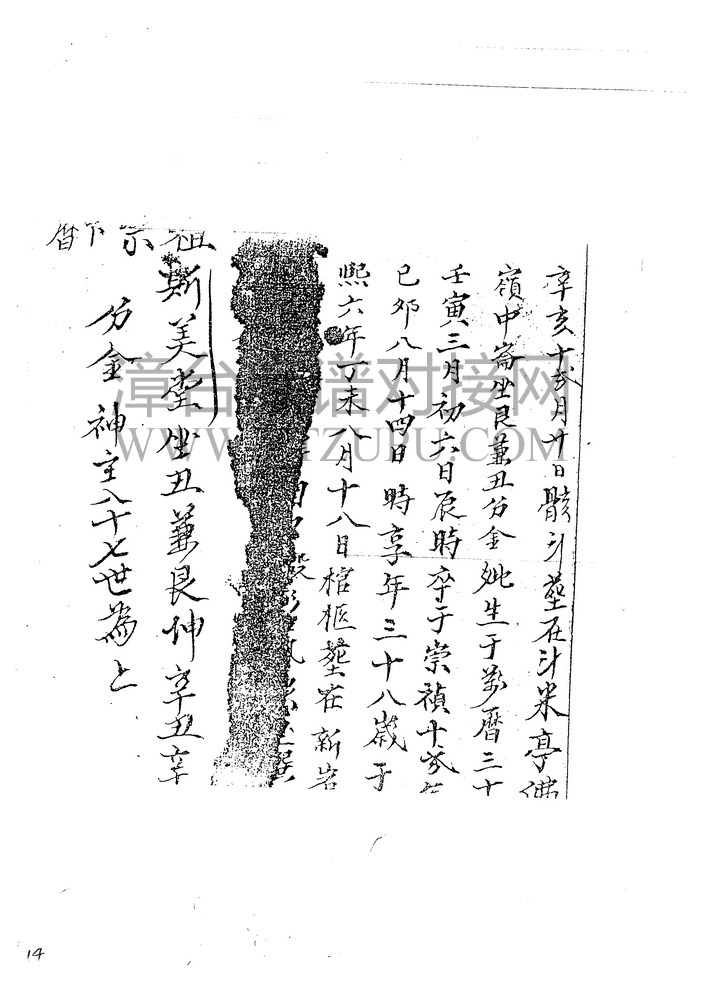 辛亥十弍月廿日骸斗塟在斗米亭佛
嶺中崙坐艮兼丑分金妣生于萬曆三十
壬寅三月初六日辰時卒于崇禎十弍年
己夘八月十四日時享年三十八歲于
熙六年丁未八月十八日棺柩塟在新岩
祖示下曆
斯美堂坐丑兼艮仲辛丑辛
分金神主八十七世為上
WWW.ZTZUPU.COM
14